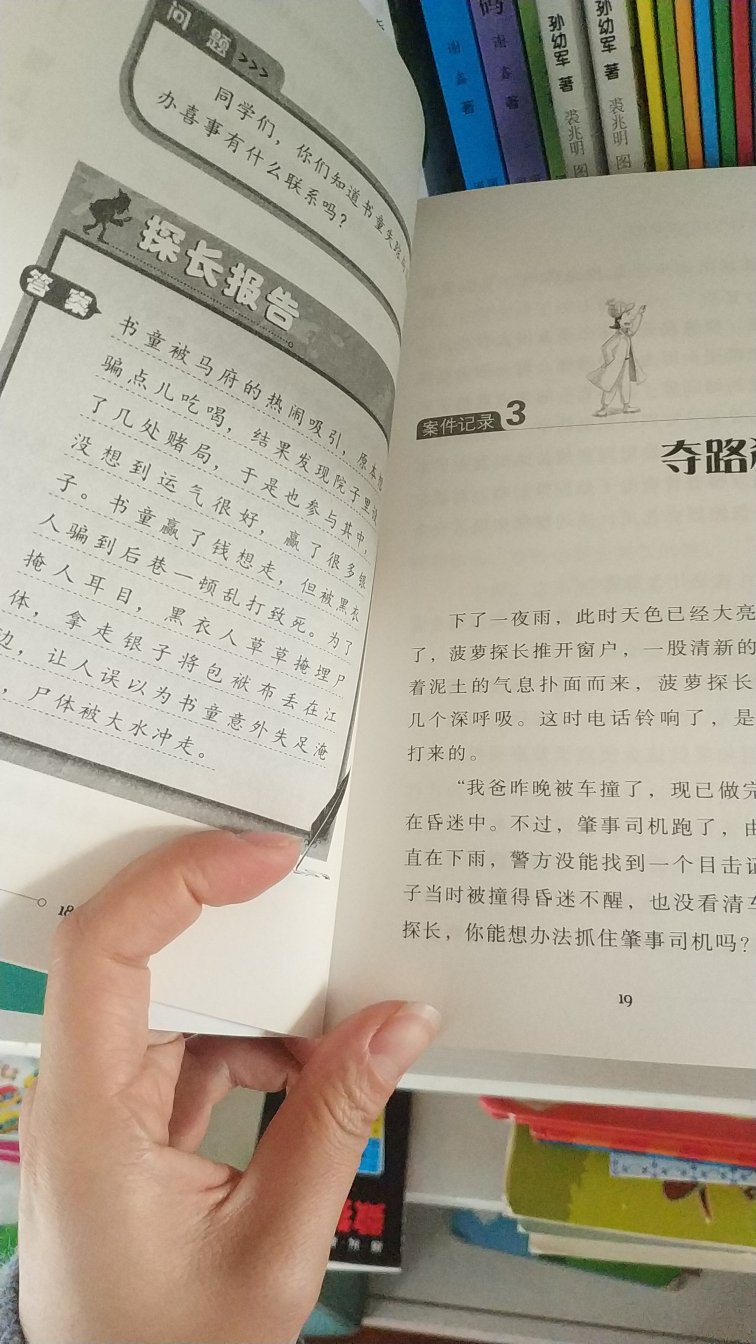 问题>>>
同学们，你们知道书童失踪与
办喜事有什么联系吗？
探长报告
答案
书童被马府的热闹吸引，原本想
骗点儿吃喝，结果发现院子里设
了几处赌局，于是也参与其中，
没想到运气很好，赢了很多银
子。书童赢了钱想走，但被黑衣
人骗到后巷一顿乱打致死。为了
掩人耳目，黑衣人草草掩埋尸
体，拿走银子将包袱布丢在江
边，让人误以为书童意外失足淹
，尸体被大水冲走。
18
案件记录3
夺路
下了一夜雨，此时天色已经大亮
了，菠萝探长推开窗户，一股清新的
着泥土的气息扑面而来，菠萝探长
几个深呼吸。这时电话铃响了，是
打来的。
“我爸昨晚被车撞了，现已做完
在昏迷中。不过，肇事司机跑了，由
直在下雨，警方没能找到一个目击证
子当时被撞得昏迷不醒，也没看清车
探长，你能想办法抓住肇事司机吗？
19
码
谢鑫 著
谢鑫 著
孙幼军 著
裘兆明 图
孙幼军 著
裘兆明 图